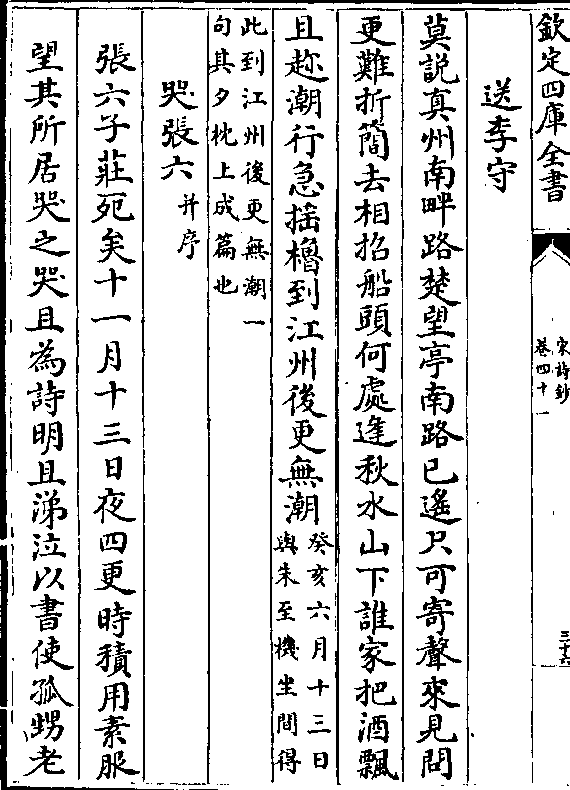 欽定四庫全書
宋詩鈔
卷四十一
三十六
送李守
莫說真州南畔路楚望亭南路已遙只可寄聲來見問
更難折簡去相招船頭何處逢秋水山下誰家把酒飄
且趂潮行急搖櫓到江州後更無潮癸亥六月十三日
與朱至機坐間得
此到江州後更無潮一
句其夕枕上成篇也
哭張六并序
張六子莊死矣十一月十三日夜四更時積用素服
望其所居哭之哭且為詩明且涕泣以書使孤甥老